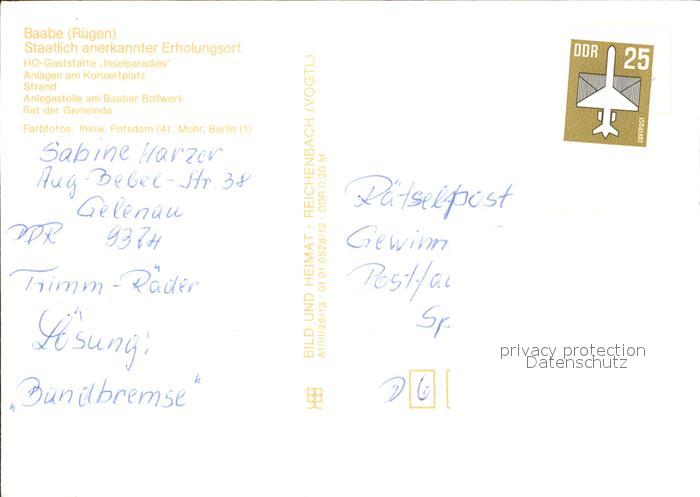 Baabe (Rügen)
Staatlich anerkannter Erholungsort
HO-Gaststätte „Inselparadies"
Anlagen am Konzertplatz
Strand
Anlegestelle am Baaber Bollwerk
Rat der Gemeinde
Farbfotos: Ihlow, Potsdam (4); Mohr, Berlin (1)
Sabine Harzer
Aug-Bebel-Str. 38
Gelenau
DDR 9374
Trimm-Räder
Lösung:
„Bandbremse"
BILD UND HEIMAT · REICHENBACH (VOGTL)
A1/III/26/13 · 01 01 0528/12 · DDR 0,20 M
DDR 25
LUFTPOST
Rätselpost
Gewinn
Postfac
Sp
D 6
privacy protection
Datenschutz